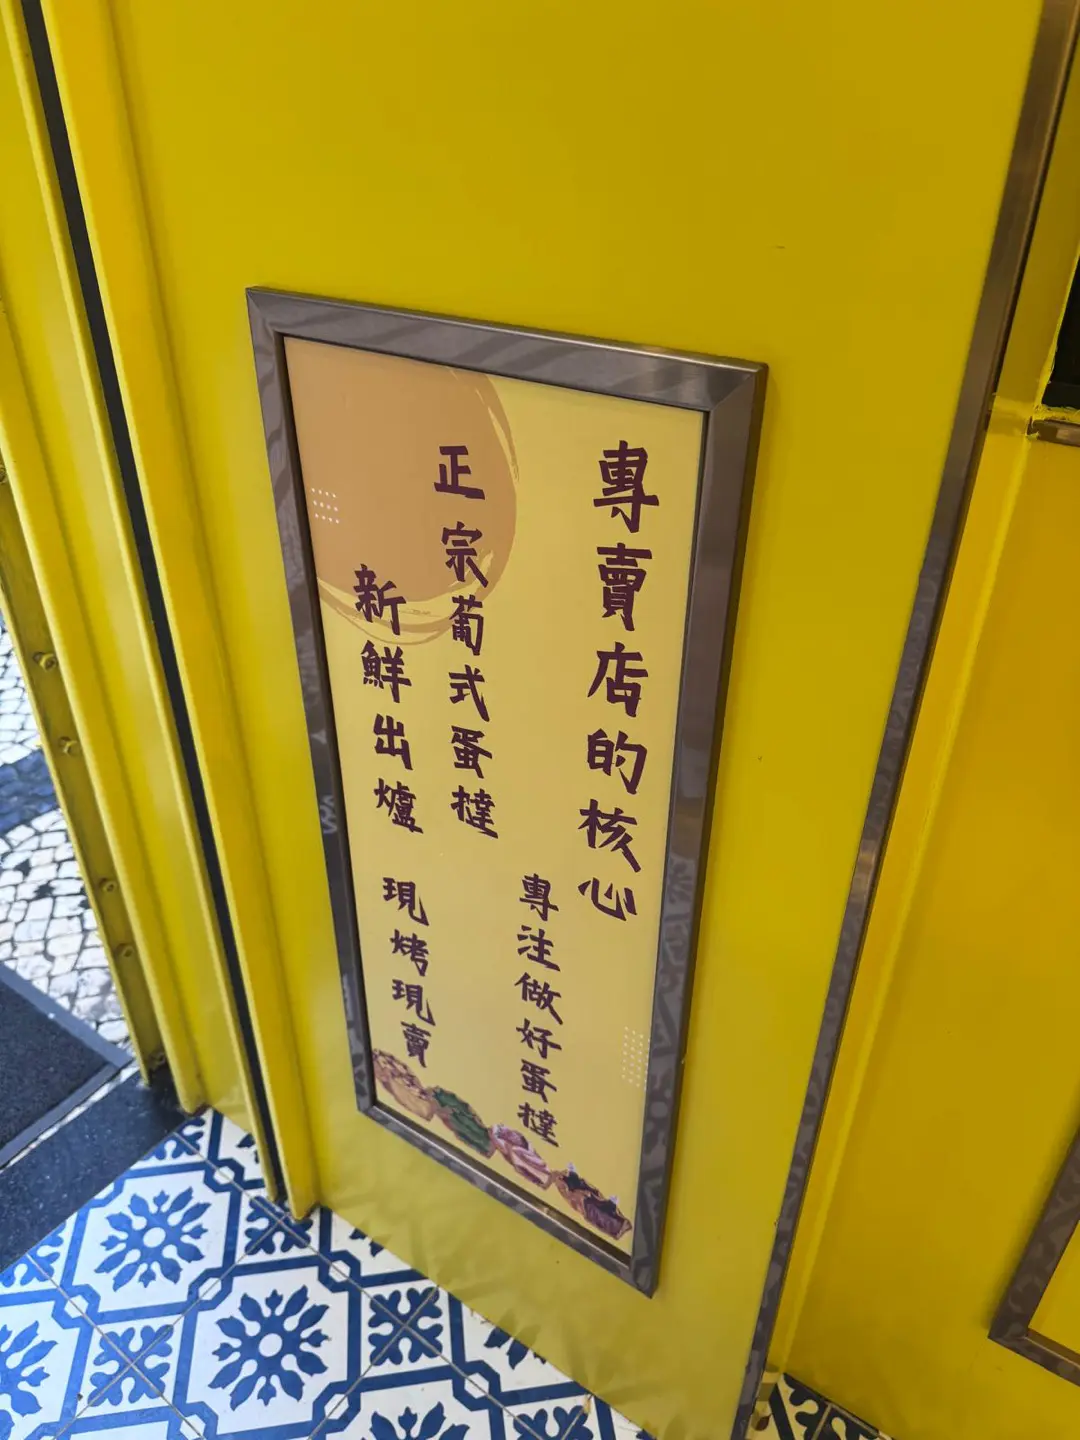 專賣店的核心
專注做好蛋撻
正宗葡式蛋撻
新鮮出爐 現烤現賣